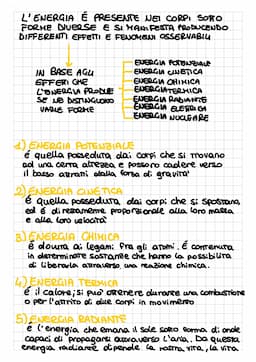 L'ENERGIA È PRESENTE NEI CORPI SOTTO
FORME DIVERSE E SI MANIFESTA PRODUCENDO
DIFFERENTI EFFETTI E FENOMENI OSSERVABILI
IN BASE AGLI
EFFETTI CHE
L'ENERGIA PRODUCE
SE NE DISTINGUONO
VARIE FORME
ENERGIA POTENZIALE
ENERGIA CINETICA
ENERGIA CHIMICA
ENERGIA TERMICA
ENERGIA RADIANTE
ENERGIA ELETTRICA
ENERGIA NUCLEARE
1) ENERGIA POTENZIALE
è quella posseduta dai corpi che si trovano
ad una certa altezza e possono cadere verso
il basso attratti dalla forza di gravità
2) ENERGIA CINETICA
è quella posseduta dai corpi che si spostano,
ed è direttamente proporzionale alla loro massa
e alla loro velocità
3) ENERGIA CHIMICA
è dovuta ai legami fra gli atomi. È contenuta
in determinate sostanze che hanno la possibilità
di liberarla attraverso una reazione chimica.
4) ENERGIA TERMICA
è il calore; si può ottenere durante una combustione
o per l'attrito di due corpi in movimento
5) ENERGIA RADIANTE
è l'energia che emana il sole sotto forma di onde
capaci di propagarsi attraverso l'aria. Da questa
energia radiante dipende la nostra vita, la vita